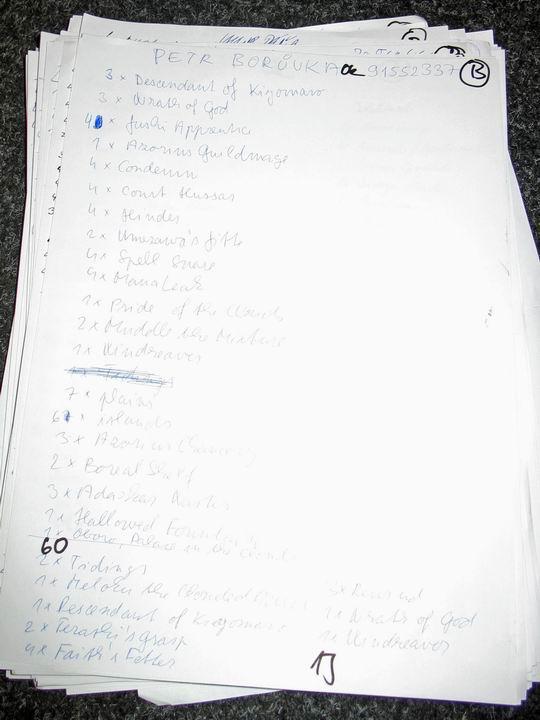 PETR BORŮVKA 91552337 B
3 × Descendant of Kiyomaro
3 × Wrath of God
4 × Jushi Apprentice
1 × Azorius Guildmage
4 × Condemn
4 × Court Hussar
4 × Hinder
2 × Umezawa's Jitte
4 × Spell Snare
4 × Mana Leak
1 × Pride of the Clouds
2 × Muddle the Mixture
1 × Windreaver
7 × plains
6 × islands
3 × Azorius Chancery
2 × Boreal Shelf
3 × Adarkar Wastes
1 × Hallowed Fountain
1 × Oboro, Palace in the Clouds
60
2 × Tidings
1 × Meloku the Clouded Mirror
1 × Descendant of Kiyomaro
2 × Terashi's Grasp
4 × Faith's Fetter
3 × Remand
1 × Wrath of God
1 × Windreaver
15